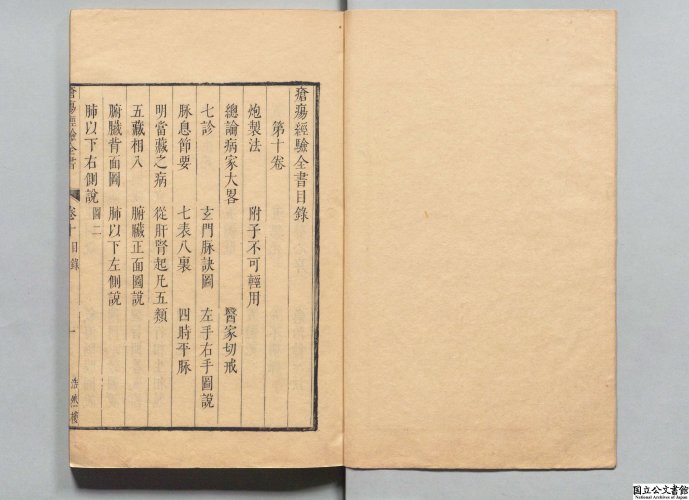 瘡瘍經驗全書目錄
第十卷
炮製法　附子不可輕用
總論病家大畧　醫家切戒
七診　玄門脉訣圖　左手右手圖說
脉息節要　七表八裏　四時平脉
明當藏之病　從肝腎起凡五類
五藏相入　腑臟正面圖說
腑臟背面圖　肺以下左側說
肺以下右側說圖二
瘡瘍經驗全書　卷十　目錄　一　浩然樓
国立公文書館
National Archives of Japan